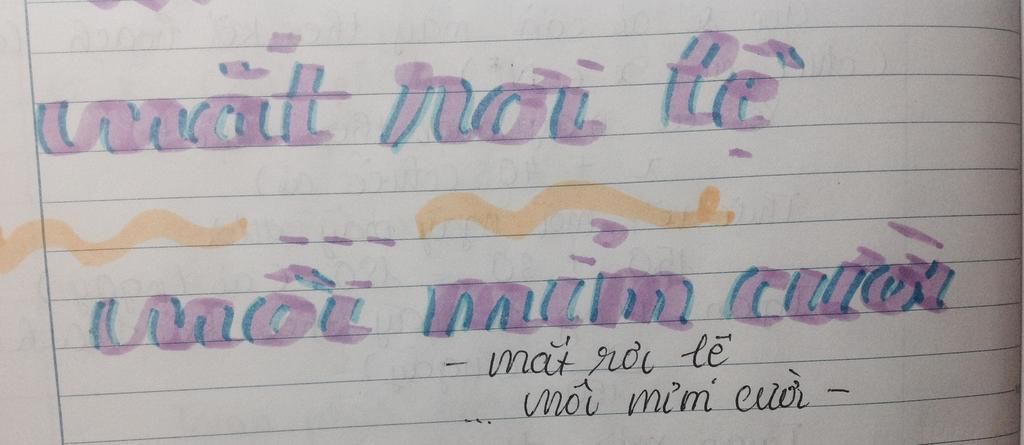 mắt rơi lệ
môi mỉm cười
- mắt rơi lệ
... môi mỉm cười -